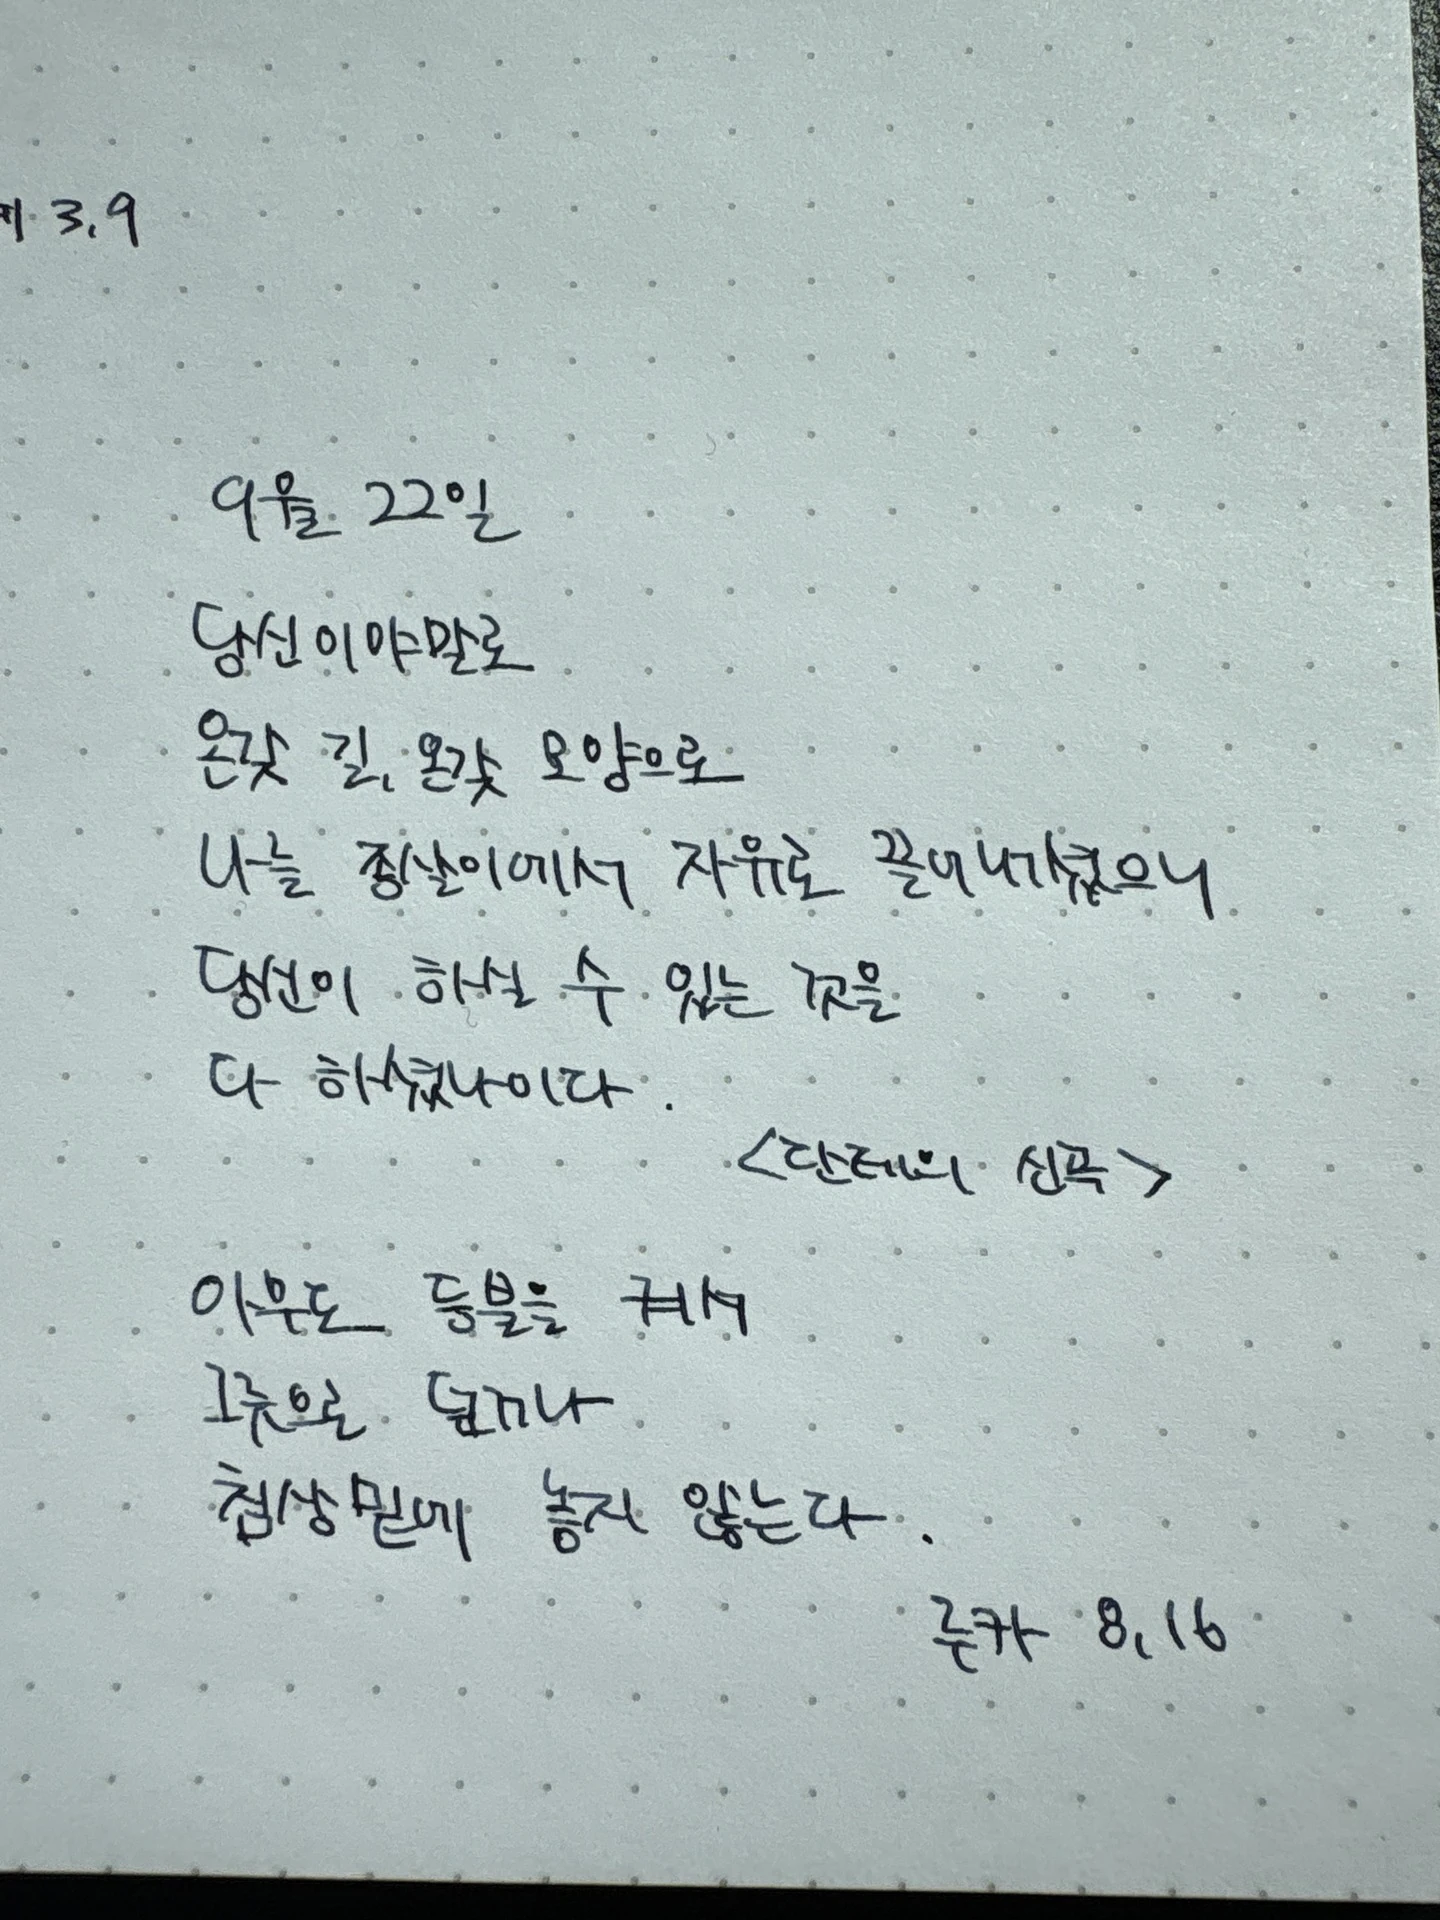 3,9
9월 22일
당신이야말로
온갖 길, 온갖 모양으로
나를 종살이에서 자유로 끌어내셨으니
당신이 하실 수 있는 것을
다 하셨나이다.
<단테의 신곡>
아무도 등불을 켜서
그릇으로 덮거나
침상 밑에 놓지 않는다.
루카 8,16